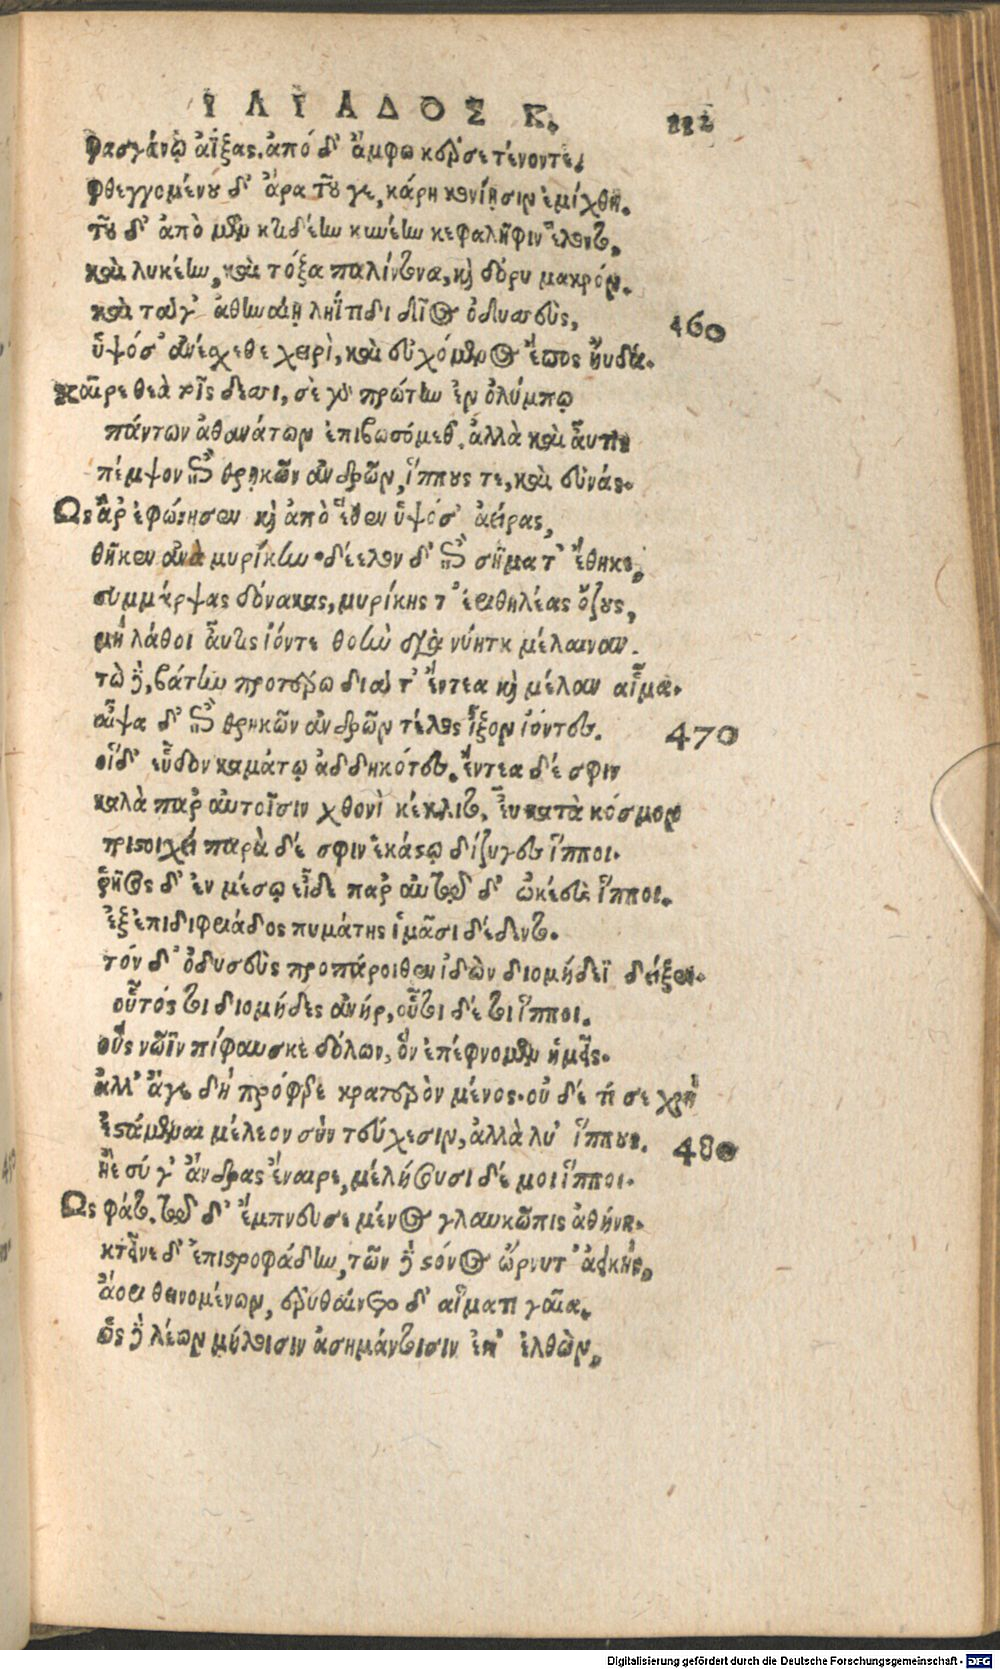 ΙΛΙΑΔΟΣ Κ. 112
φασγάνῳ ἀΐξας. ἀπό δ' ἄμφω κέρσε τένοντε,
φθεγγομένου δ' ἄρα τοῦ γε, κάρη κονίῃσιν ἐμίχθη.
τοῦ δ' ἀπὸ μὲν κτιδέην κυνέην κεφαλῆφιν ἕλοντο,
καὶ λυκέην, καὶ τόξα παλίντονα, καὶ δόρυ μακρόν.
καὶ τάγ' ἀθηναίῃ ληΐτιδι δῖος ὀδυσσεὺς, 460
ὑψόσ' ἀνέσχεθε χειρὶ, καὶ εὐχόμενος ἔπος ηὔδα.
χαῖρε θεὰ τοῖς δεσσι, σὲ γὰρ πρώτην ἐν ὀλύμπῳ
πάντων ἀθανάτων ἐπιβωσόμεθ'. ἀλλὰ καὶ αὖτις
πέμψον ἐπὶ θρῃκῶν ἀνδρῶν, ἵππους τε, καὶ εὐνάς.
Ως ἄρ' ἐφώνησεν καὶ ἀπὸ ἕθεν ὑψόσ' ἀείρας,
θῆκεν ἀνὰ μυρίκην. δέελον δ' ἐπὶ σῆμα τ' ἔθηκε,
συμμάρψας δόνακας, μυρίκης τ' ἐριθηλέας ὄζους,
μὴ λάθοι αὖτις ἰόντε θοὴν διὰ νύκτα μέλαιναν.
τὼ δὲ, βάτην προτέρω διά τ' ἔντεα καὶ μέλαν αἷμα.
αἶψα δ' ἐπὶ θρηκῶν ἀνδρῶν τέλος ἷξον ἰόντες. 470
οἵδ' εὗδον καμάτῳ ἀδδηκότες. ἔντεα δέ σφιν
καλὰ παρ' αὐτοῖσιν χθονὶ κέκλιτο. εὖ κατὰ κόσμον
τριστοιχεί παρὰ δέ σφιν ἑκάστῳ δίζυγες ἵπποι.
ῥῆσος δ' ἐν μέσῳ εὗδε παρ' αὐτῷ δ' ὠκέες ἵπποι.
ἐξ ἐπιδιφριάδος πυμάτης ἱμᾶσι δέδεντο.
τόν δ' ὀδυσσεὺς προπάροιθεν ἰδὼν διομήδεϊ δεῖξεν.
οὗτός τοι διομήδες ἀνήρ, οὗτοι δέ τοι ἵπποι.
οὓς νῶϊν πίφαυσκε δόλων, ὃν ἐπέφνομεν ἡμεῖς.
ἀλλ' ἄγε δὴ πρόφερε κρατερὸν μένος. οὐ δέ τί σε χρὴ
ἑστάμεναι μέλεον σὺν τεύχεσιν, ἀλλὰ λυ' ἵππους. 480
ἠὲ σύ γ' ἄνδρας ἔναιρε, μελήσουσι δέ μοι ἵπποι.
Ως φάτο. τῷ δ' ἔμπνευσε μένος γλαυκῶπις ἀθήνη.
κτεῖνε δ' ἐπιστροφάδην, τῶν δὲ στόνος ὤρνυτ' ἀεικὴς,
ἄορι θεινομένων, ἐρυθαίνετο δ' αἵματι γαῖα.
ὡς δὲ λέων μήλοισιν ἀσημάντοισιν ἐπ' ἐλθὼν,
Digitalisierung gefördert durch die Deutsche Forschungsgemeinschaft - DFG